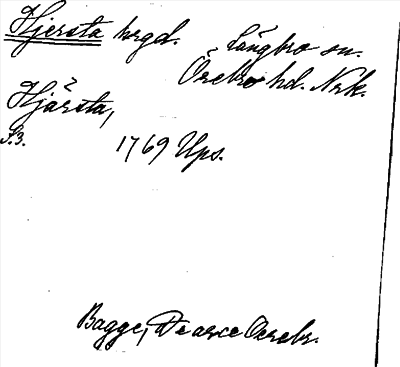 Hjersta hrgd. Längbro sn.
Örebro hd. Nrk.
Hjårsta,
S.3. 1769 Ups.
Bagge, De arce Oerebr.